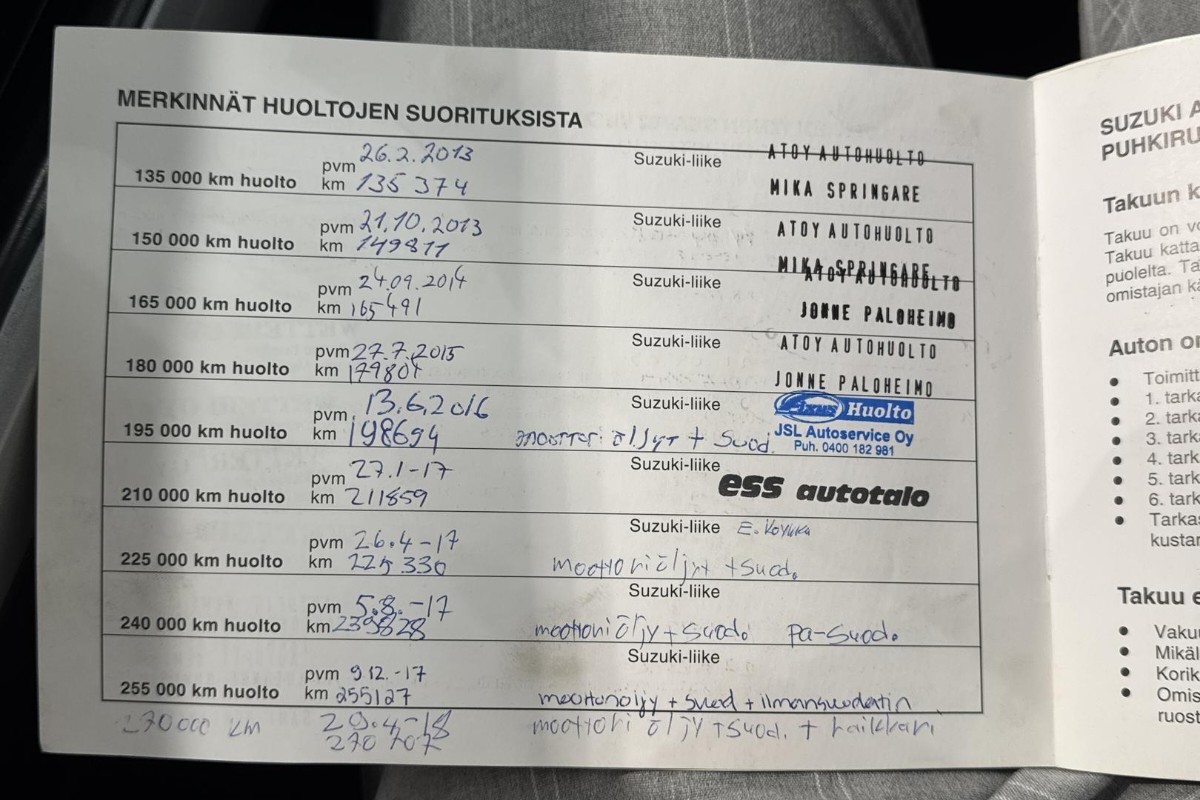 MERKINNÄT HUOLTOJEN SUORITUKSISTA
135 000 km huolto pvm 26.2.2013 Suzuki-liike ATOY AUTOHUOLTO
km 135 374 MIKA SPRINGARE
150 000 km huolto pvm 21.10.2013 Suzuki-liike ATOY AUTOHUOLTO
km 149811 MIKA SPRINGARE
165 000 km huolto pvm 24.09.2014 Suzuki-liike ATOY AUTOHUOLTO
km 165491 JONNE PALOHEIMO
180 000 km huolto pvm 27.7.2015 Suzuki-liike ATOY AUTOHUOLTO
km JONNE PALOHEIMO
195 000 km huolto pvm 13.6.2016 Suzuki-liike Huolto
km 198694 moottori öljyt + suod. JSL Autoservice Oy
Puh. 0400 182 981
210 000 km huolto pvm 27.1-17 Suzuki-liike ess autotalo
km 211859
225 000 km huolto pvm 26.4-17 Suzuki-liike E.
km 225 330 moottoriöljyt + suod.
240 000 km huolto pvm 5.8.-17 Suzuki-liike
km 239828 moottoriöljy + suod. pa-suod.
255 000 km huolto pvm 9.12.-17 Suzuki-liike
km 255127 moottoriöljy + suod + ilmansuodatin
270000 km 29.4-18 moottori öljy + suod. +
270 707
SUZUKI A
PUHKIRU
Takuun k
Takuu on vo
Takuu katta
puolelta. Ta
omistajan kä
Auton o
Toimitt
1. tarka
2. tarka
3. tarka
4. tark
5. tark
6. tark
Tarkas
kustar
Takuu e
Vaku
Mikäl
Korik
Omis
ruost